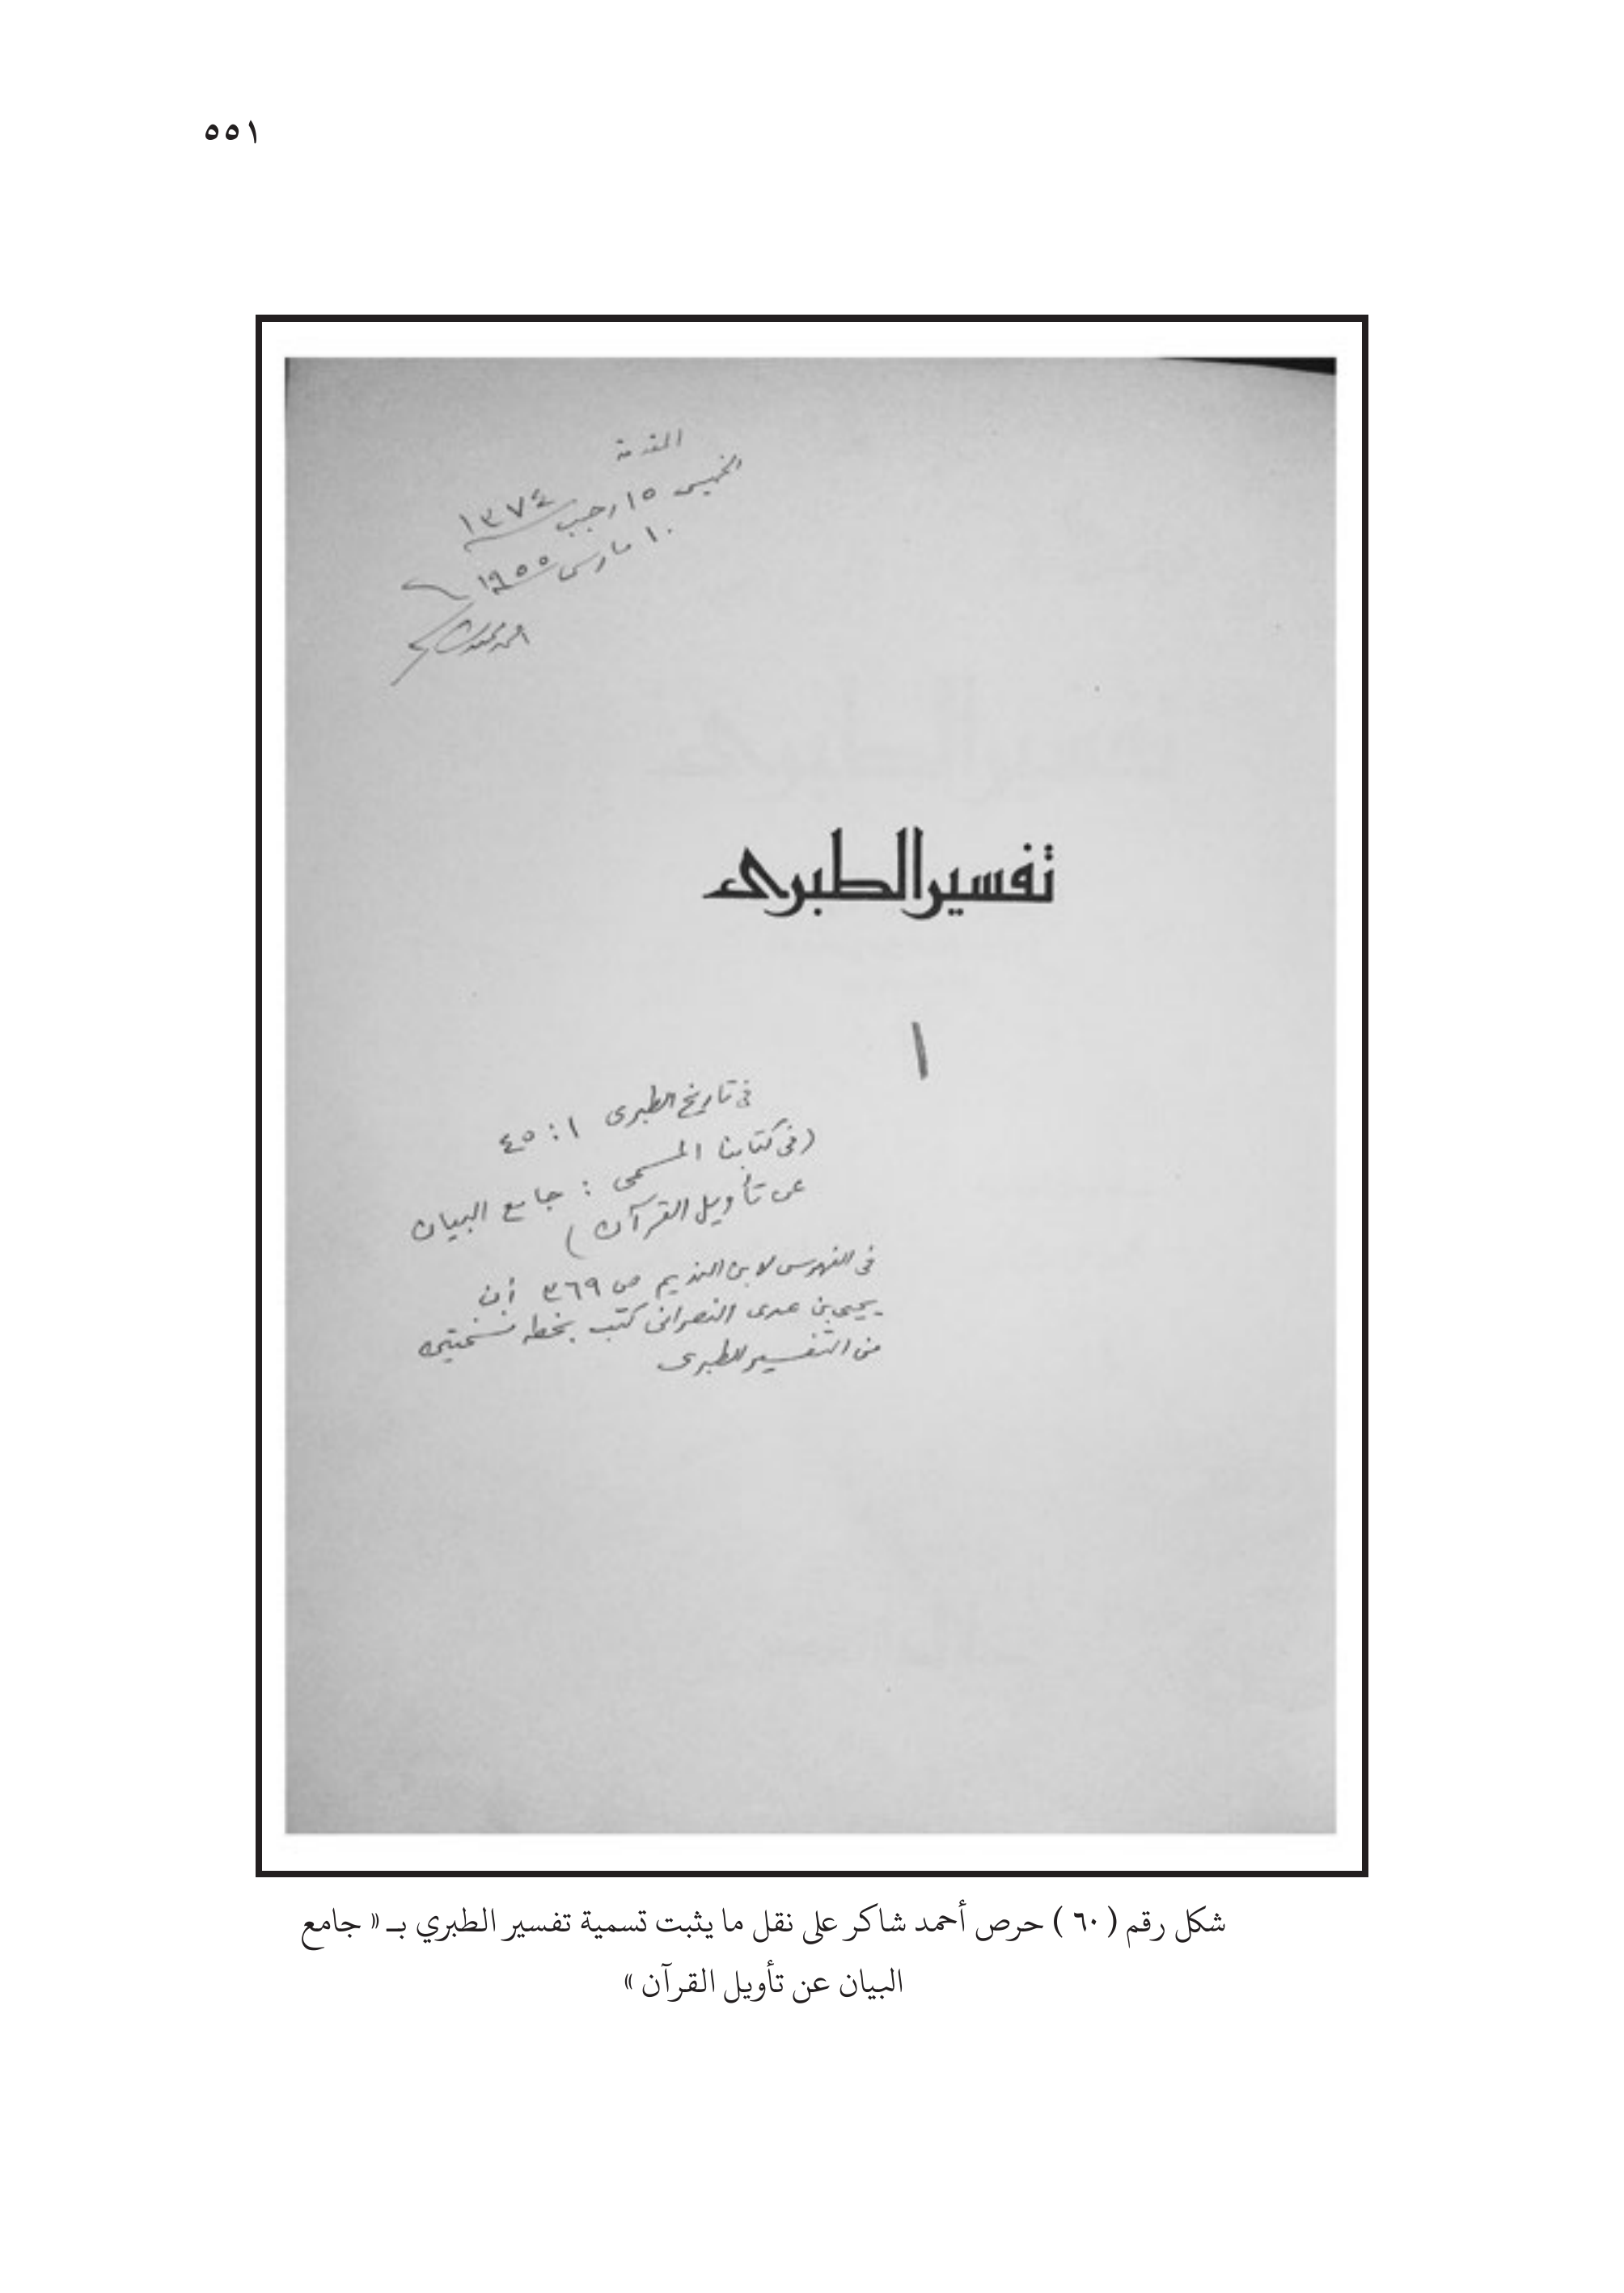 ٥٥١
المقدمة
الخميس ١٥ رجب ١٣٧٤
١٠ مارس ١٩٥٥
أحمد محمد شاكر
تفسير الطبرى
١
فى تاريخ الطبرى ١ : ٤٥
(فى كتابنا المسمى : جامع البيان
عن تأويل القرآن )
فى الفهرس لابن النديم ص ٣٦٩ أن
يحيى بن عدى النصرانى كتب بخطه نسختين
من التفسير للطبرى
شكل رقم ( ٦٠ ) حرص أحمد شاكر على نقل ما يثبت تسمية تفسير الطبري بـ « جامع
البيان عن تأويل القرآن »